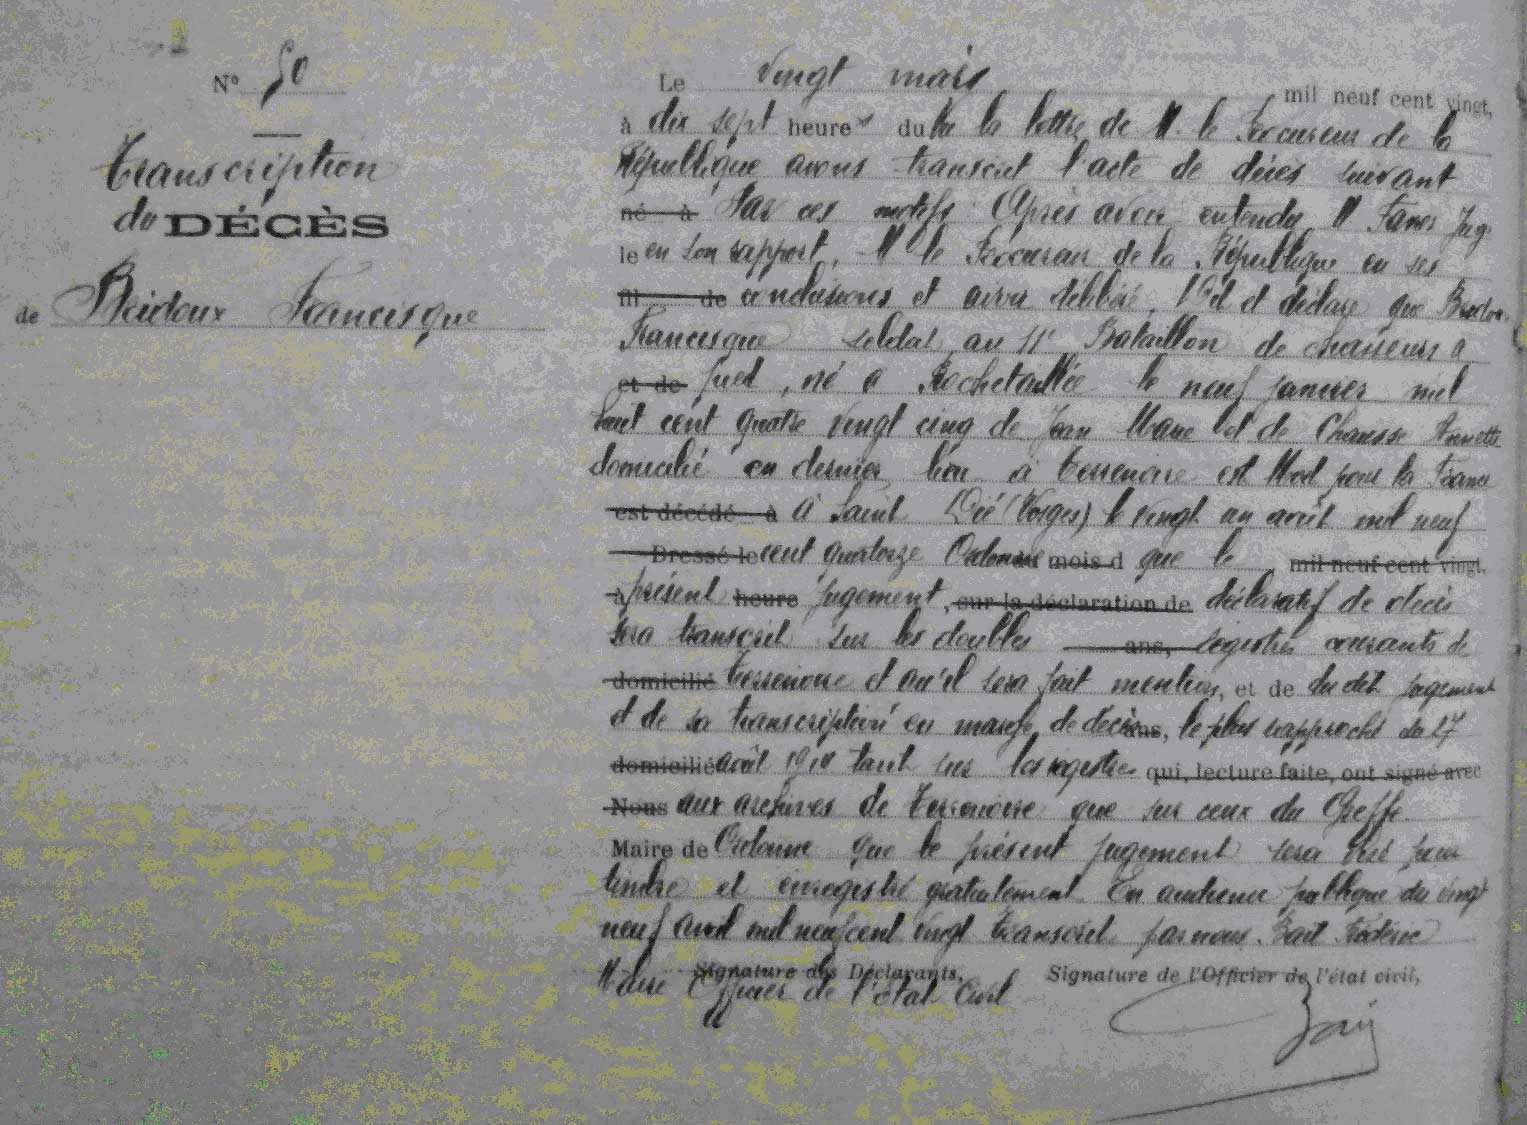 N° 50
Transcription
du DÉCÈS
de Bridoux Francisque
Le vingt mars mil neuf cent vingt,
à dix sept heures du Vu la lettre de M. le Procureur de la
République avons transcrit l'acte de décès suivant
né à Par ces motifs Après avoir entendu M Juge
le en son rapport, M le Procureur de la République en ses
fil de conclusions et avoir délibéré, Dit et déclare que
Francisque soldat au 11e Bataillon de chasseurs à
et de pied, né à Rochetaillée le neuf janvier mil
huit cent quatre vingt cinq de Jean Marie et de Chausse Annette
domicilié en dernier lieu à Terrenoire est Mort pour la France
est décédé à à Saint Dié (Vosges) le vingt un août mil neuf
Dressé le cent quatorze Ordonne mois d que le mil neuf cent vingt,
à présent heure jugement, sur la déclaration de déclaratif de décès
sera transcrit sur les doubles ans, registres courants de
domicilié Terrenoire et qu'il sera fait mention, et de du dit jugement
et de sa transcription en marge de décès ans, le plus rapproché du 27
domicilié août 1914 tant sur les registres qui, lecture faite, ont signé avec
Nous aux archives de Terrenoire que sur ceux du Greffe
Maire de Ordonne que le présent jugement sera visé pour
timbre et enregistré gratuitement En audience publique du vingt
neuf avril mil neuf cent vingt Transcrit par nous
Maire Officier de l'état Civil
Signature des Déclarants, Signature de l'Officier de l'état civil,